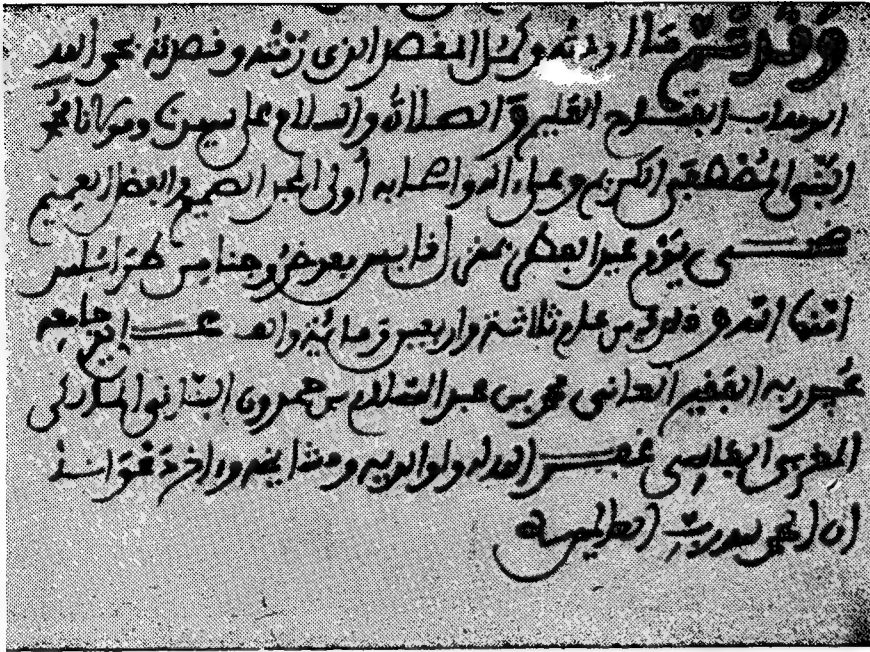 وقد تم ما أردته وكمل الغرض الذي رمته وقصدته بحمد الله
الوهاب الفتاح العليم والصلاة والسلام على سيدنا ومولانا محمد
النبي المصطفى الكريم وعلى اله واصحابه أولى المجد الصميم والفضل العميم
ضحى يوم عيد الفطر بمدينة فاس بعد خروجنا من
امنها الله وذلك من عام ثلاثة واربعين ومائة والف جامعه
عبد ربه الفقير الجاني محمد بن عبد السلام بن حمدون البناني
المغربي الفاسي غفر الله له ولوالديه ومشايخه وءاخر دعوانا
أن الحمد لله رب العالمين